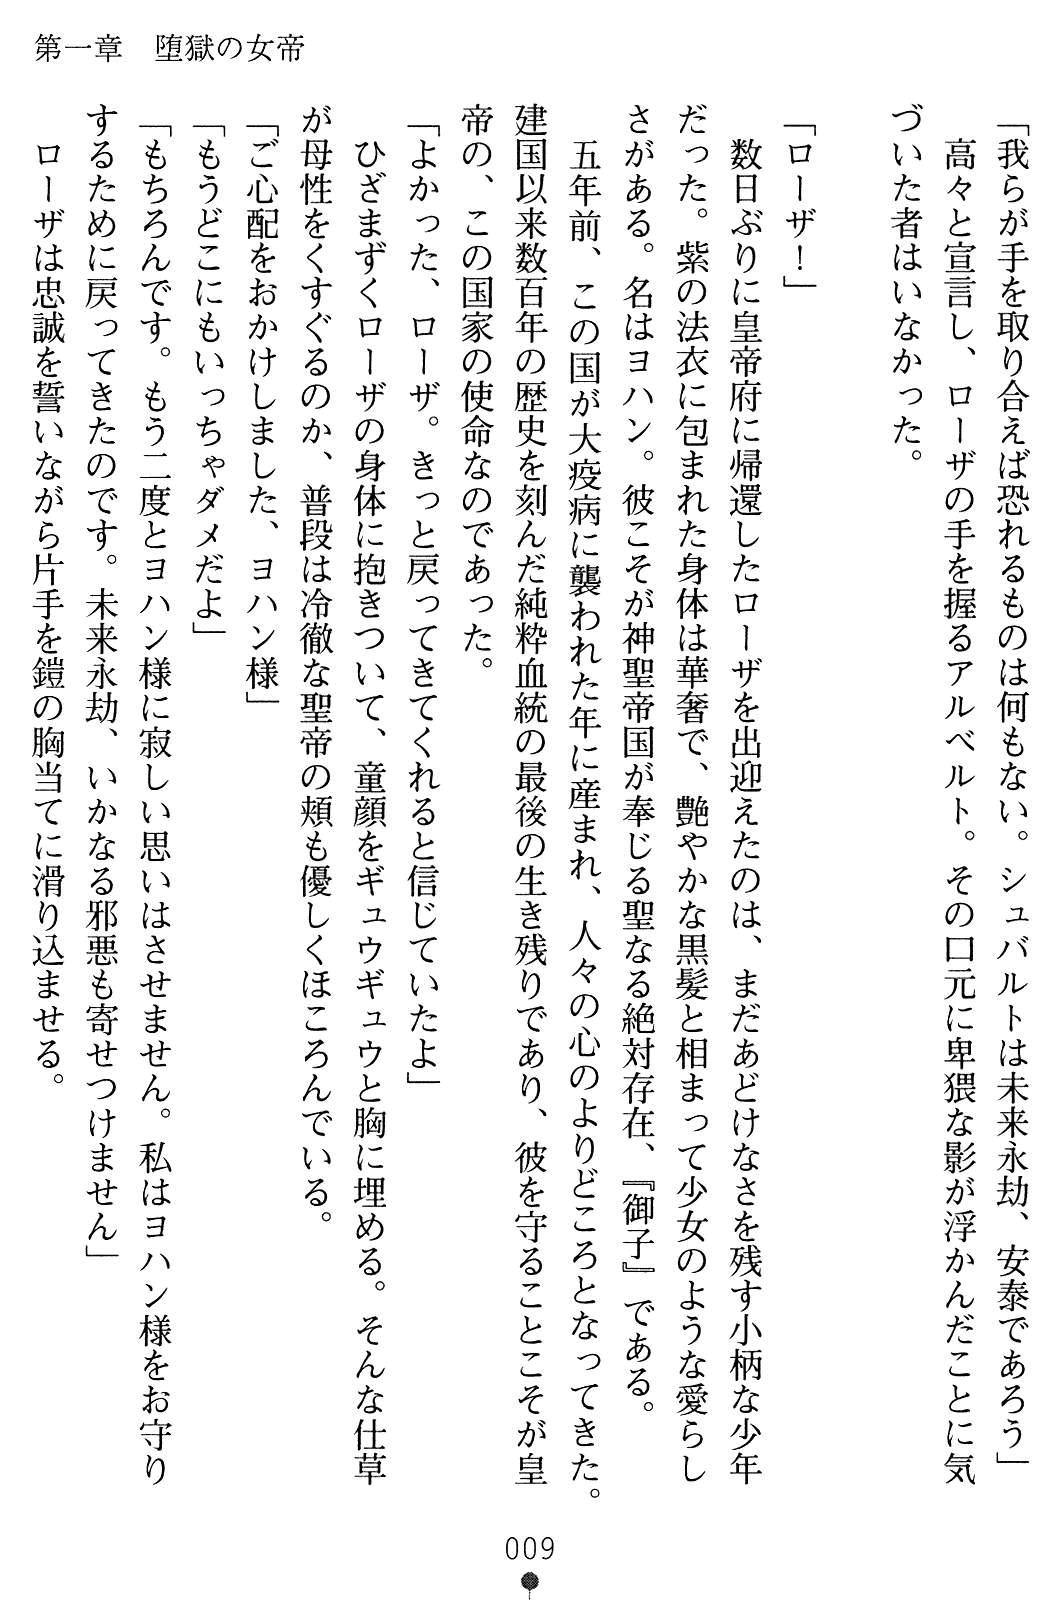 第一章　堕獄の女帝
「我らが手を取り合えば恐れるものは何もない。シュバルトは未来永劫、安泰であろう」
　高々と宣言し、ローザの手を握るアルベルト。その口元に卑猥な影が浮かんだことに気
づいた者はいなかった。
「ローザ！」
　数日ぶりに皇帝府に帰還したローザを出迎えたのは、まだあどけなさを残す小柄な少年
だった。紫の法衣に包まれた身体は華奢で、艶やかな黒髪と相まって少女のような愛らし
さがある。名はヨハン。彼こそが神聖帝国が奉じる聖なる絶対存在、『御子』である。
　五年前、この国が大疫病に襲われた年に産まれ、人々の心のよりどころとなってきた。
建国以来数百年の歴史を刻んだ純粋血統の最後の生き残りであり、彼を守ることこそが皇
帝の、この国家の使命なのであった。
「よかった、ローザ。きっと戻ってきてくれると信じていたよ」
　ひざまずくローザの身体に抱きついて、童顔をギュウギュウと胸に埋める。そんな仕草
が母性をくすぐるのか、普段は冷徹な聖帝の頬も優しくほころんでいる。
「ご心配をおかけしました、ヨハン様」
「もうどこにもいっちゃダメだよ」
「もちろんです。もう二度とヨハン様に寂しい思いはさせません。私はヨハン様をお守り
するために戻ってきたのです。未来永劫、いかなる邪悪も寄せつけません」
　ローザは忠誠を誓いながら片手を鎧の胸当てに滑り込ませる。
009